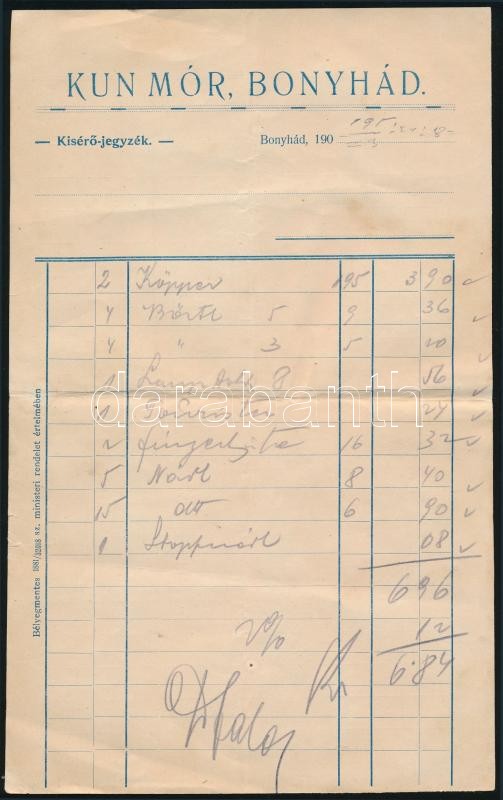 KUN MÓR, BONYHÁD.
— Kisérő-jegyzék. — Bonyhád, 190
2 Köpper 195 3 90
4 Börtl 5 9 36
4 " 3 5 20
1 8 56
1 24
2 16 32
5 Nadl 8 40
15 dtt 6 90
1 Stoppnadl 08
6 96
2% 12
6·84
Bélyegmentes 1881/ sz. ministeri rendelet értelmében
darabanth